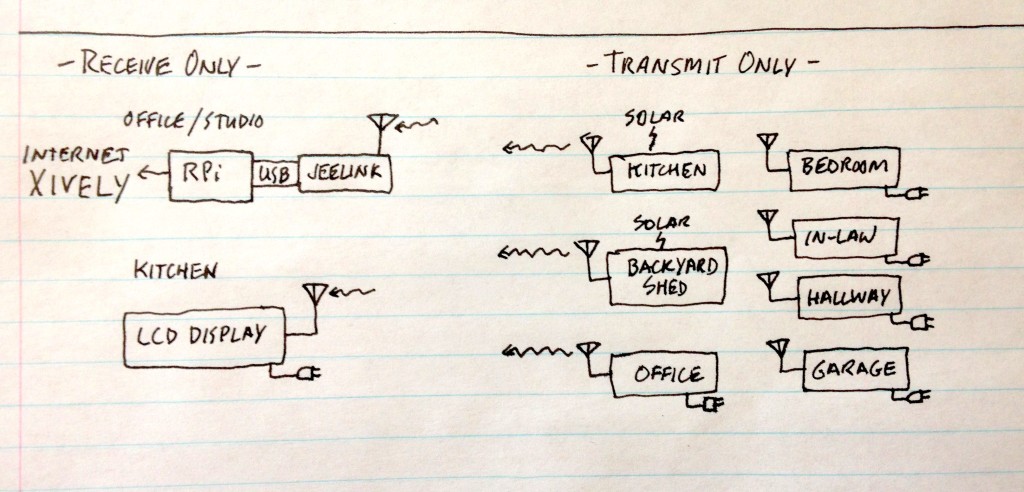 - RECEIVE ONLY -
OFFICE/STUDIO
INTERNET
XIVELY
RPi
USB
JEELINK
KITCHEN
LCD DISPLAY
- TRANSMIT ONLY -
SOLAR
KITCHEN
BEDROOM
SOLAR
BACKYARD
SHED
IN-LAW
HALLWAY
OFFICE
GARAGE